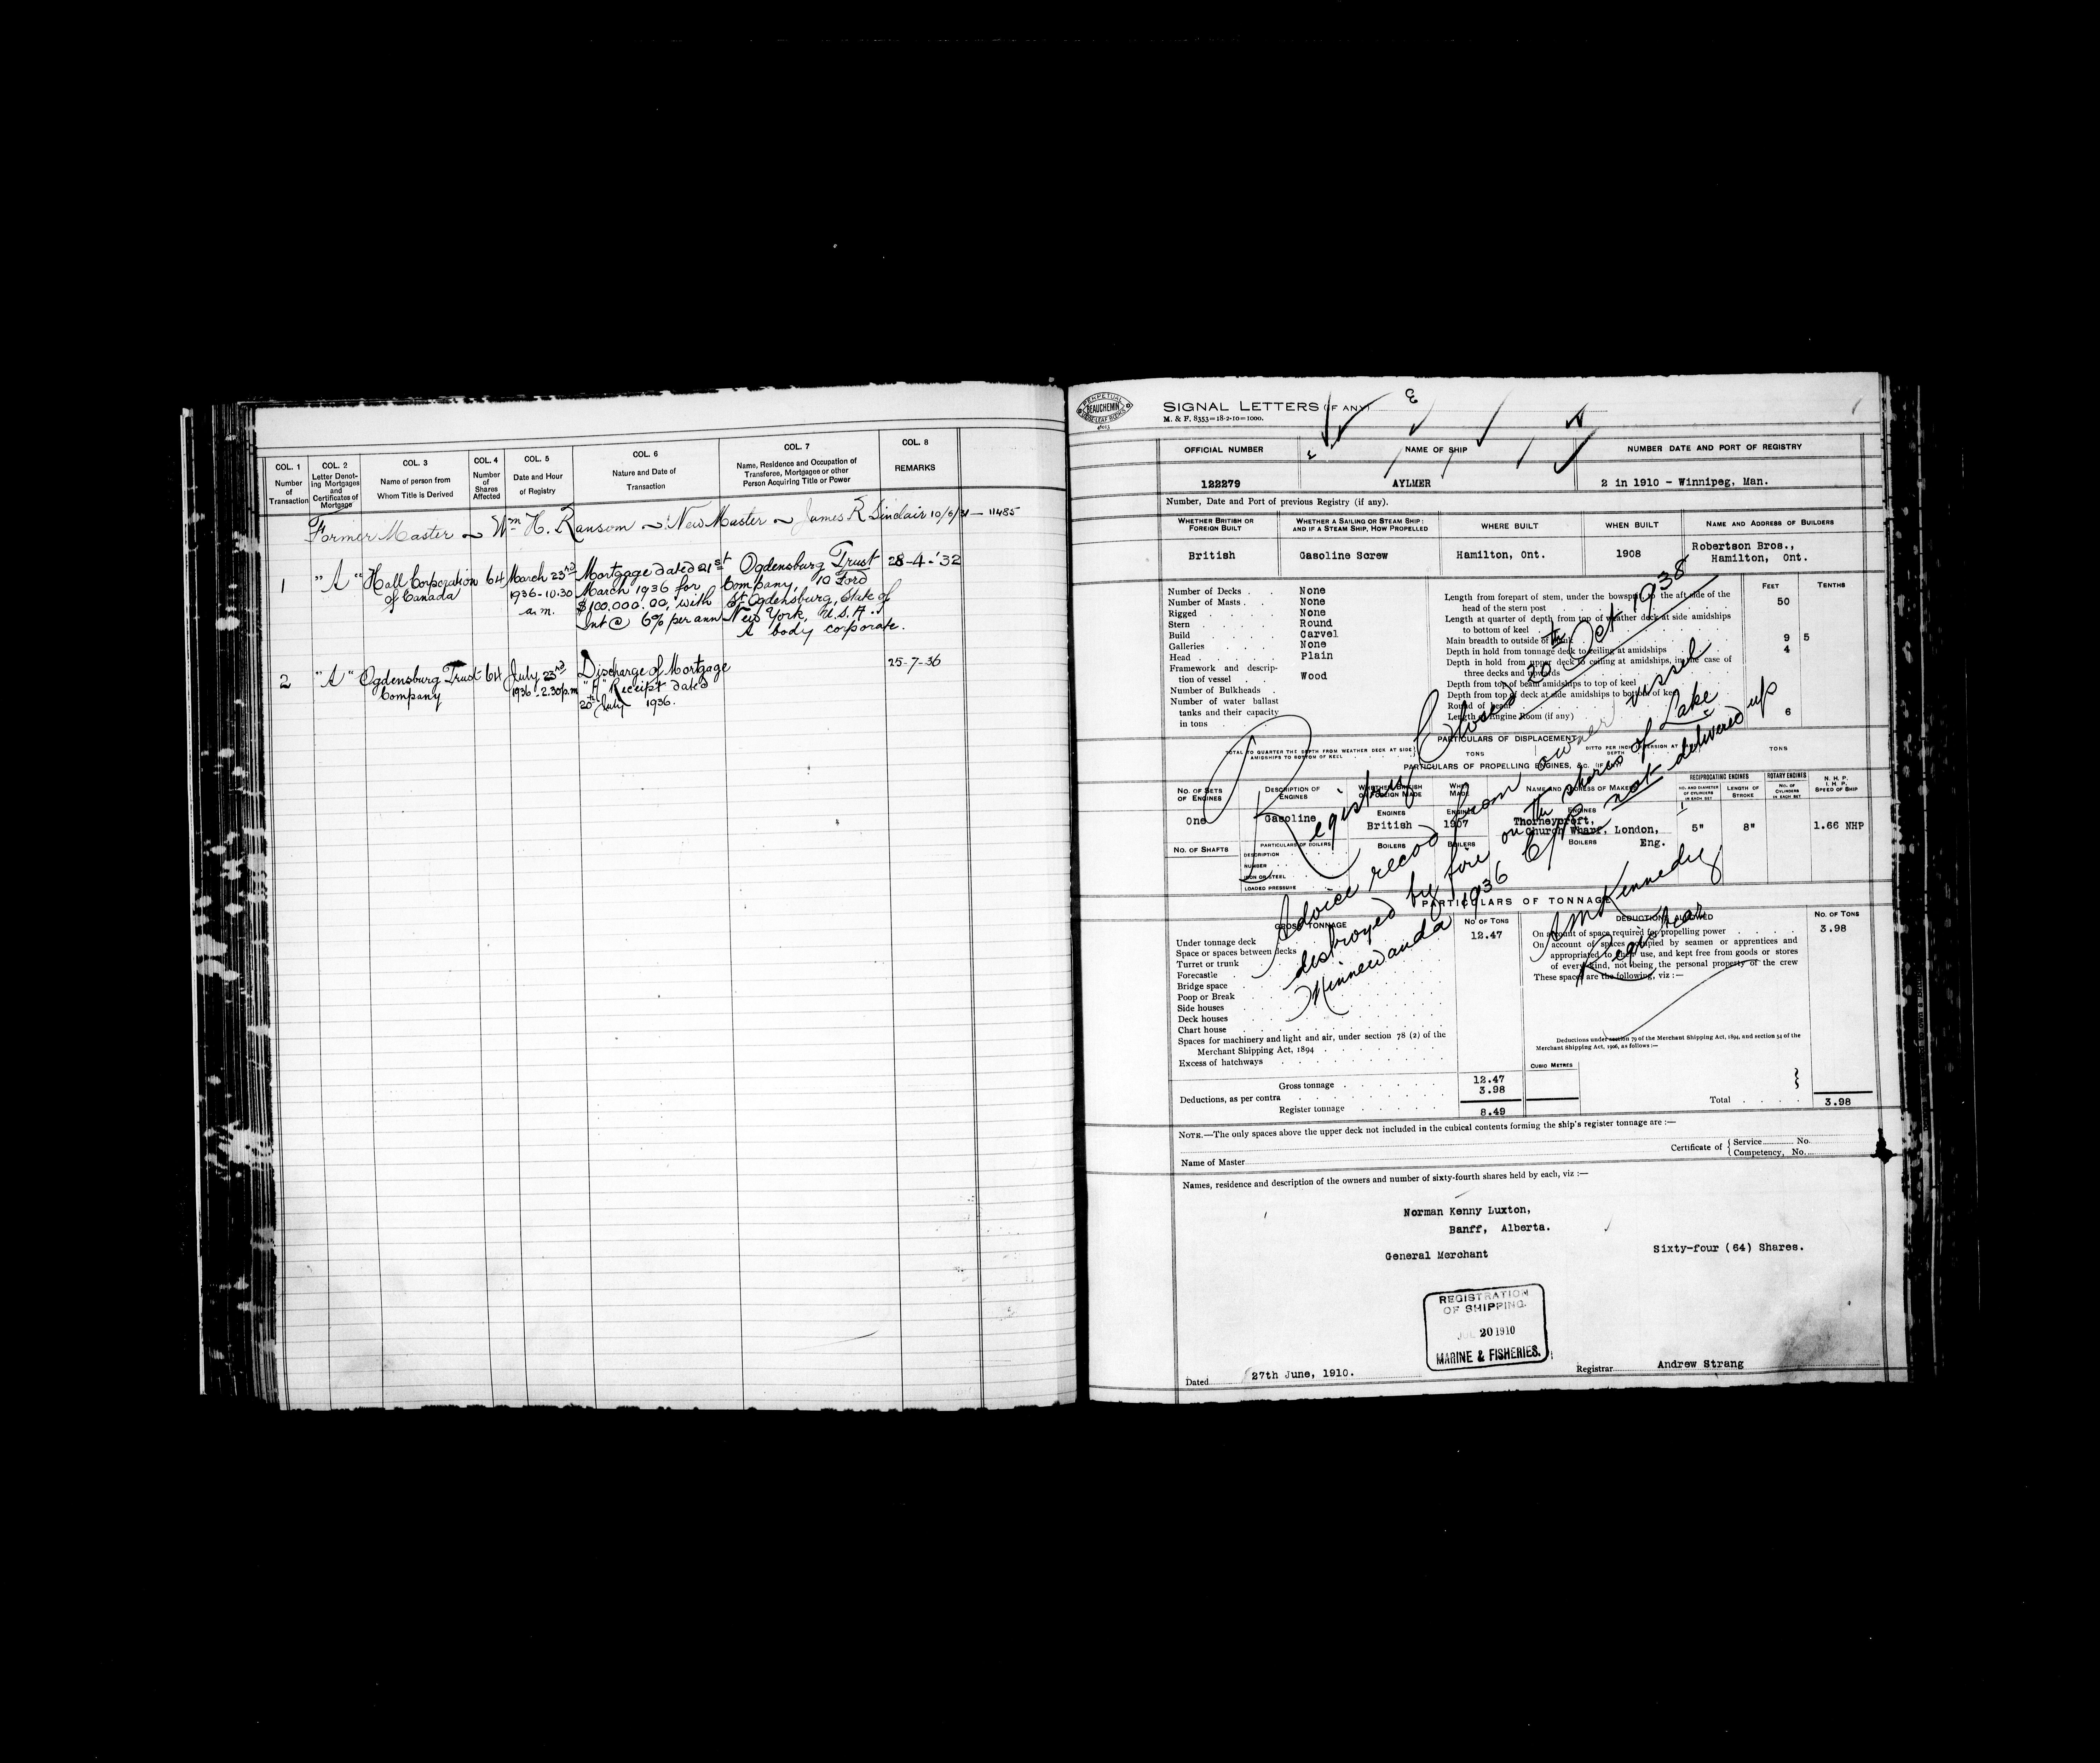 COL. 1
Number
of
Transaction
COL. 2
Letter Denot-
ing Mortgages
and
Certificates of
Mortgage
COL. 3
Name of person from
Whom Title is Derived
COL. 4
Number
of
Shares
Affected
COL. 5
Date and Hour
of Registry
COL. 6
Nature and Date of
Transaction
COL. 7
Name, Residence and Occupation of
Transferee, Mortgagee or other
Person Acquiring Title or Power
COL. 8
REMARKS
Former Master ~ Wm H. Ransom ~ New Master ~ James R Sinclair 10/6/31 — 11485
1
"A"
Hall Corporation
of Canada
64
March 23rd
1936-10.30
a.m.
Mortgage dated 21st
March 1936 for
$100,000.00, with
Int @ 6% per ann
Ogdensburg Trust
Company, 10 Ford
St. Ogdensburg, State of
New York, U.S.A.
A body corporate.
28-4-'32
2
"A"
Ogdensburg Trust
Company
64
July 23rd
1936-2.30p.m
Discharge of Mortgage
"A" Receipt dated
20th July 1936.
25-7-36
PERPETUAL
BEAUCHEMIN
SIGNAL LETTERS (IF ANY)
M. & F. 8353=18-2-10=1000.
OFFICIAL NUMBER
NAME OF SHIP
NUMBER DATE AND PORT OF REGISTRY
122279
AYLMER
2 in 1910 - Winnipeg, Man.
Number, Date and Port of previous Registry (if any).
WHETHER BRITISH OR
FOREIGN BUILT
WHETHER A SAILING OR STEAM SHIP:
AND IF A STEAM SHIP, HOW PROPELLED
WHERE BUILT
WHEN BUILT
NAME AND ADDRESS OF BUILDERS
British
Gasoline Screw
Hamilton, Ont.
1908
Robertson Bros.,
Hamilton, Ont.
Number of Decks . . None
Number of Masts . . None
Rigged . . . . None
Stern . . . . Round
Build . . . . Carvel
Galleries . . . None
Head . . . . Plain
Framework and descrip-
tion of vessel . . Wood
Number of Bulkheads .
Number of water ballast
tanks and their capacity
in tons . . .
FEET
TENTHS
Length from forepart of stem, under the bowsprit, to the aft side of the
head of the stern post 50
Length at quarter of depth from top of weather deck at side amidships
to bottom of keel
Main breadth to outside of plank 9 5
Depth in hold from tonnage deck to ceiling at amidships 4
Depth in hold from upper deck to ceiling at amidships, in the case of
three decks and upwards
Depth from top of beam amidships to top of keel
Depth from top of deck at side amidships to bottom of keel
Round of beam
Length of Engine Room (if any) 6
PARTICULARS OF DISPLACEMENT
TOTAL TO QUARTER THE DEPTH FROM WEATHER DECK AT SIDE
AMIDSHIPS TO BOTTOM OF KEEL
TONS
DITTO PER INCH IMMERSION AT
DEPTH
TONS
PARTICULARS OF PROPELLING ENGINES, &C. (IF ANY)
NO. OF SETS
OF ENGINES
DESCRIPTION OF
ENGINES
WHETHER BRITISH
OR FOREIGN MADE
WHEN
MADE
NAME AND ADDRESS OF MAKERS
RECIPROCATING ENGINES
NO. AND DIAMETER
OF CYLINDERS
IN EACH SET
LENGTH OF
STROKE
ROTARY ENGINES
NO. OF
CYLINDERS
IN EACH SET
N. H. P.
I. H. P.
SPEED OF SHIP
One
Gasoline
ENGINES
British
ENGINES
1907
ENGINES
Thorneycroft,
Church Wharf, London,
Eng.
5"
8"
1.66 NHP
NO. OF SHAFTS
PARTICULARS OF BOILERS
DESCRIPTION
NUMBER
IRON OR STEEL
LOADED PRESSURE
BOILERS
BOILERS
BOILERS
Registry Closed 20th Oct 1938
Advice recd from owner vessel
destroyed by fire on the shores of Lake
Minnewanda 1936 C/R not delivered up
A M Kennedy
Registrar
PARTICULARS OF TONNAGE
GROSS TONNAGE
NO OF TONS
DEDUCTIONS ALLOWED
NO. OF TONS
Under tonnage deck 12.47
Space or spaces between decks
Turret or trunk
Forecastle
Bridge space
Poop or Break
Side houses
Deck houses
Chart house
Spaces for machinery and light and air, under section 78 (2) of the
Merchant Shipping Act, 1894
Excess of hatchways
Gross tonnage 12.47
Deductions, as per contra 3.98
Register tonnage 8.49
On account of space required for propelling power 3.98
On account of spaces occupied by seamen or apprentices and
appropriated to their use, and kept free from goods or stores
of every kind, not being the personal property of the crew
These spaces are the following, viz :—
Deductions under section 79 of the Merchant Shipping Act, 1894, and section 54 of the
Merchant Shipping Act, 1906, as follows :—
CUBIC METRES
Total 3.98
NOTE.—The only spaces above the upper deck not included in the cubical contents forming the ship's register tonnage are :—
Name of Master
Certificate of { Service No.
Competency, No.
Names, residence and description of the owners and number of sixty-fourth shares held by each, viz :—
Norman Kenny Luxton,
Banff, Alberta.
General Merchant
Sixty-four (64) Shares.
REGISTRATION
OF SHIPPING.
JUL 20 1910
MARINE & FISHERIES.
Dated 27th June, 1910.
Registrar Andrew Strang